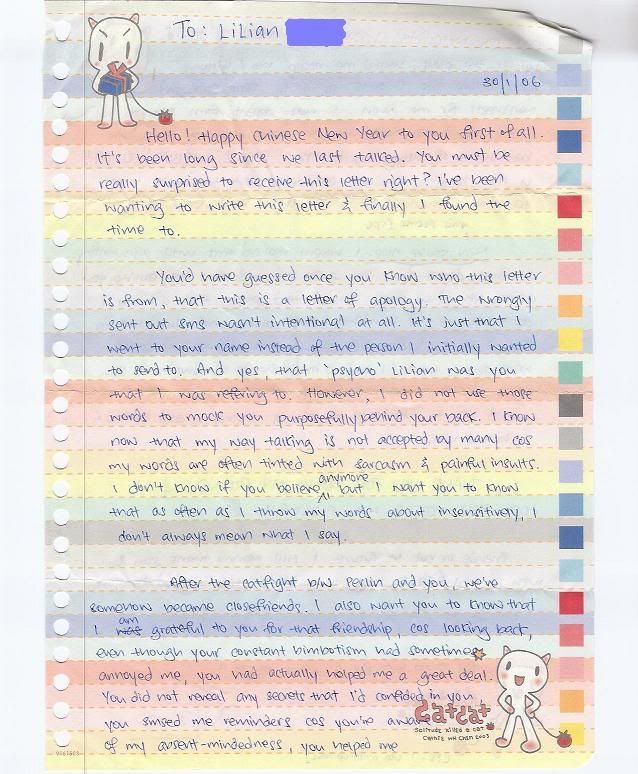 To: Lilian
30/1/06
Hello! Happy Chinese New Year to you first of all.
It's been long since we last talked. You must be
really surprised to receive this letter right? I've been
wanting to write this letter & finally I found the
time to.
You'd have guessed once you know who this letter
is from, that this is a letter of apology. The wrongly
sent out sms wasn't intentional at all. It's just that I
went to your name instead of the person I initially wanted
to send to. And yes, that 'psycho' Lilian was you
that I was refering to. However, I did not use those
words to mock you purposefully behind your back. I know
now that my way talking is not accepted by many cos
my words are often tinted with sarcasm & painful insults.
I don't know if you believe anymore, but I want you to know
that as often as I throw my words about insensitively, I
don't always mean what I say.
After the catfight b/w Perlin and you, we've
somehow became closefriends. I also want you to know that
I was am grateful to you for that friendship, cos looking back,
even though your constant bimbotism had sometimes
annoyed me, you had actually helped me a great deal.
You did not reveal any secrets that I'd confided in you,
you smsed me reminders cos you're aware
of my absent-mindedness, you helped me
CatCat
Solitude killed a cat
2003